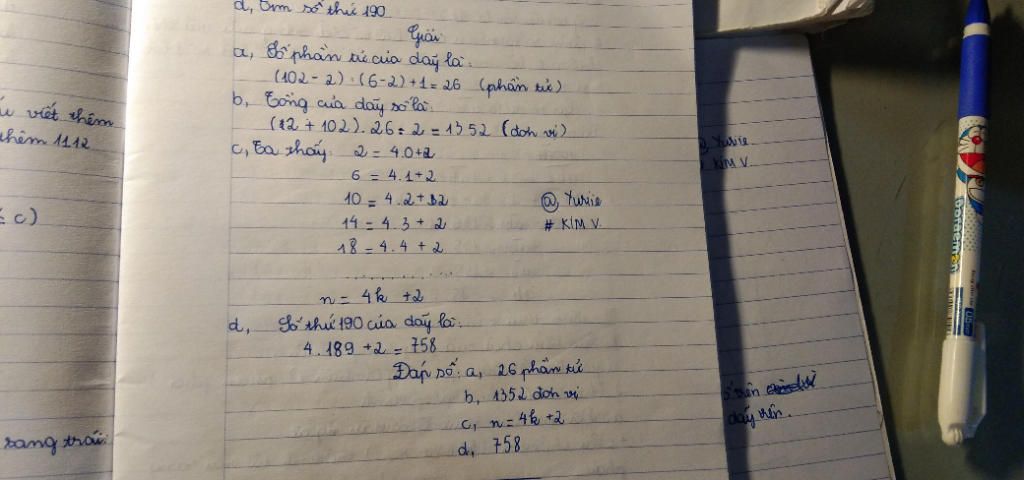 d, Tìm số thứ 190
Giải
a, Số phần tử của dãy là:
(102 - 2) : (6 - 2) + 1 = 26 (phần tử)
b, Tổng của dãy số là:
(2 + 102) . 26 : 2 = 1352 (đơn vị)
c, Ta thấy: 2 = 4.0 + 2
6 = 4.1 + 2
10 = 4.2 + 2
@ Yurie
14 = 4.3 + 2
# KIM V.
18 = 4.4 + 2
..............
n = 4k + 2
d, Số thứ 190 của dãy là:
4 . 189 + 2 = 758
Đáp số: a, 26 phần tử
b, 1352 đơn vị
c, n = 4k + 2
d, 758
viết thêm
thêm 1112
c)
sang trái
Yurie
KIM V
dãy trên.
Doraemon